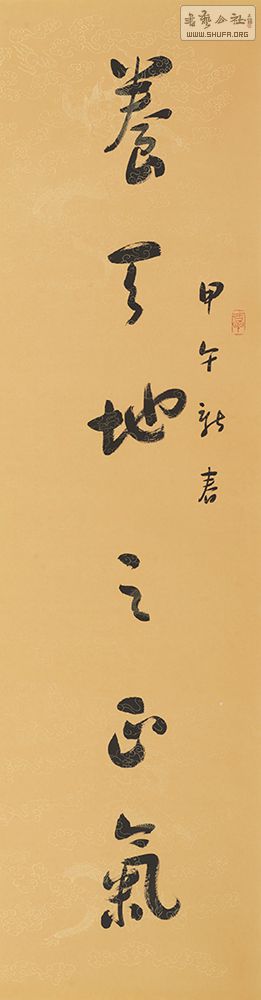 甲午新春
養天地之正氣
書藝公社
WWW.SHUFA.ORG